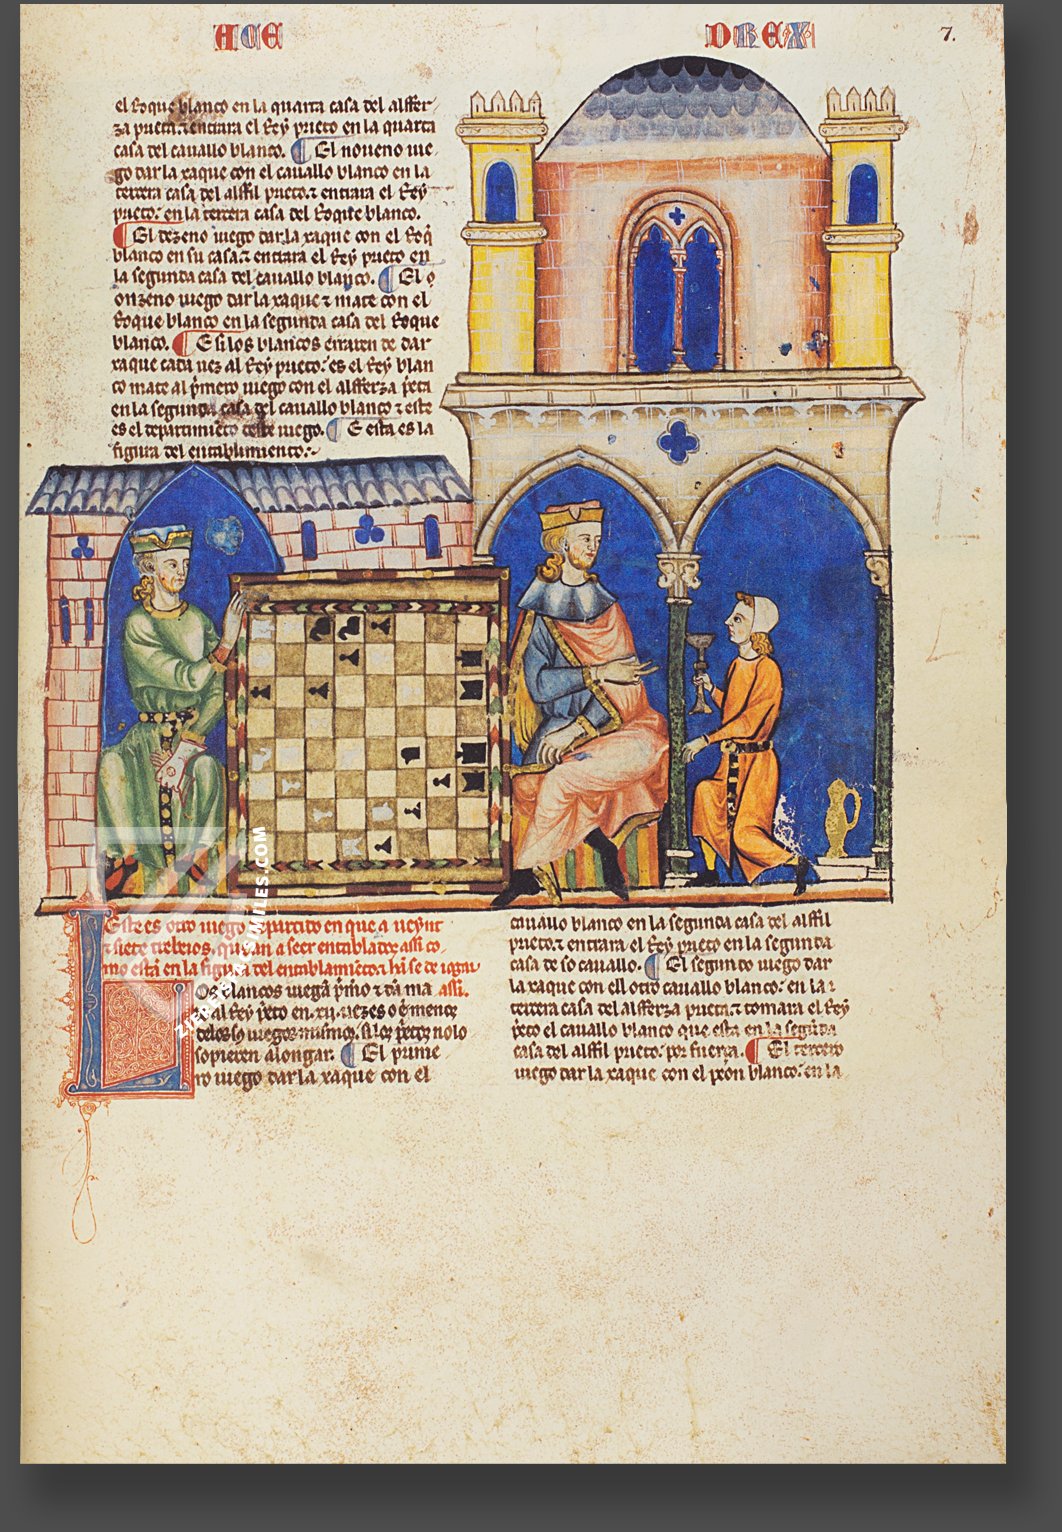 ACE
DREX
7.
el Roque blanco en la quarta casa del alffer-
za prieta. ⁊ entrara el Rey prieto en la quarta
casa del cauallo blanco. ¶ El noueno iue-
go dar la xaque con el cauallo blanco en la
tercera casa del alffil prieto. ⁊ entrara el Rey
prieto. en la tercera casa del Roque blanco.
¶ El dezeno iuego dar la xaque con el Roq̃
blanco en su casa. ⁊ entrara el Rey prieto en
la segunda casa del cauallo blanco. ¶ El
onzeno iuego dar la xaque ⁊ mate con el
Roque blanco en la segunda casa del Roque
blanco. ¶ E si los blancos erraren de dar
xaque cada uez al Rey prieto. es el Rey blan
co mate al p̃mero iuego con el alfferza p̃eta
en la segunda casa del cauallo blanco ⁊ este
es el departimiẽto deste iuego. ¶ E esta es la
figura del entablamiento.
Este es otro iuego departido en que a ueynt
⁊ siete trebeios. que an a seer entablados assi co-
mo estã en la figura del entablamiẽto. ⁊ hã se de iogar
assi.
Los blancos iuegã p̃mo ⁊ dã ma
al Rey p̃eto en .xii. uezes
delos so iuegos mismos. si los p̃etos nolo
sopieren alongar. ¶ El prime
ro iuego dar la xaque con el
cauallo blanco en la segunda casa del alffil
prieto. ⁊ entrara el Rey prieto en la segunda
casa de so cauallo. ¶ El segundo iuego dar
la xaque con ell otro cauallo blanco. en la
tercera casa del alfferza prieta. ⁊ tomara el Rey
p̃eto el cauallo blanco que esta en la segũda
casa del alffil prieto. por fuerça. ¶ El tercero
iuego dar la xaque con el peon blanco. en la